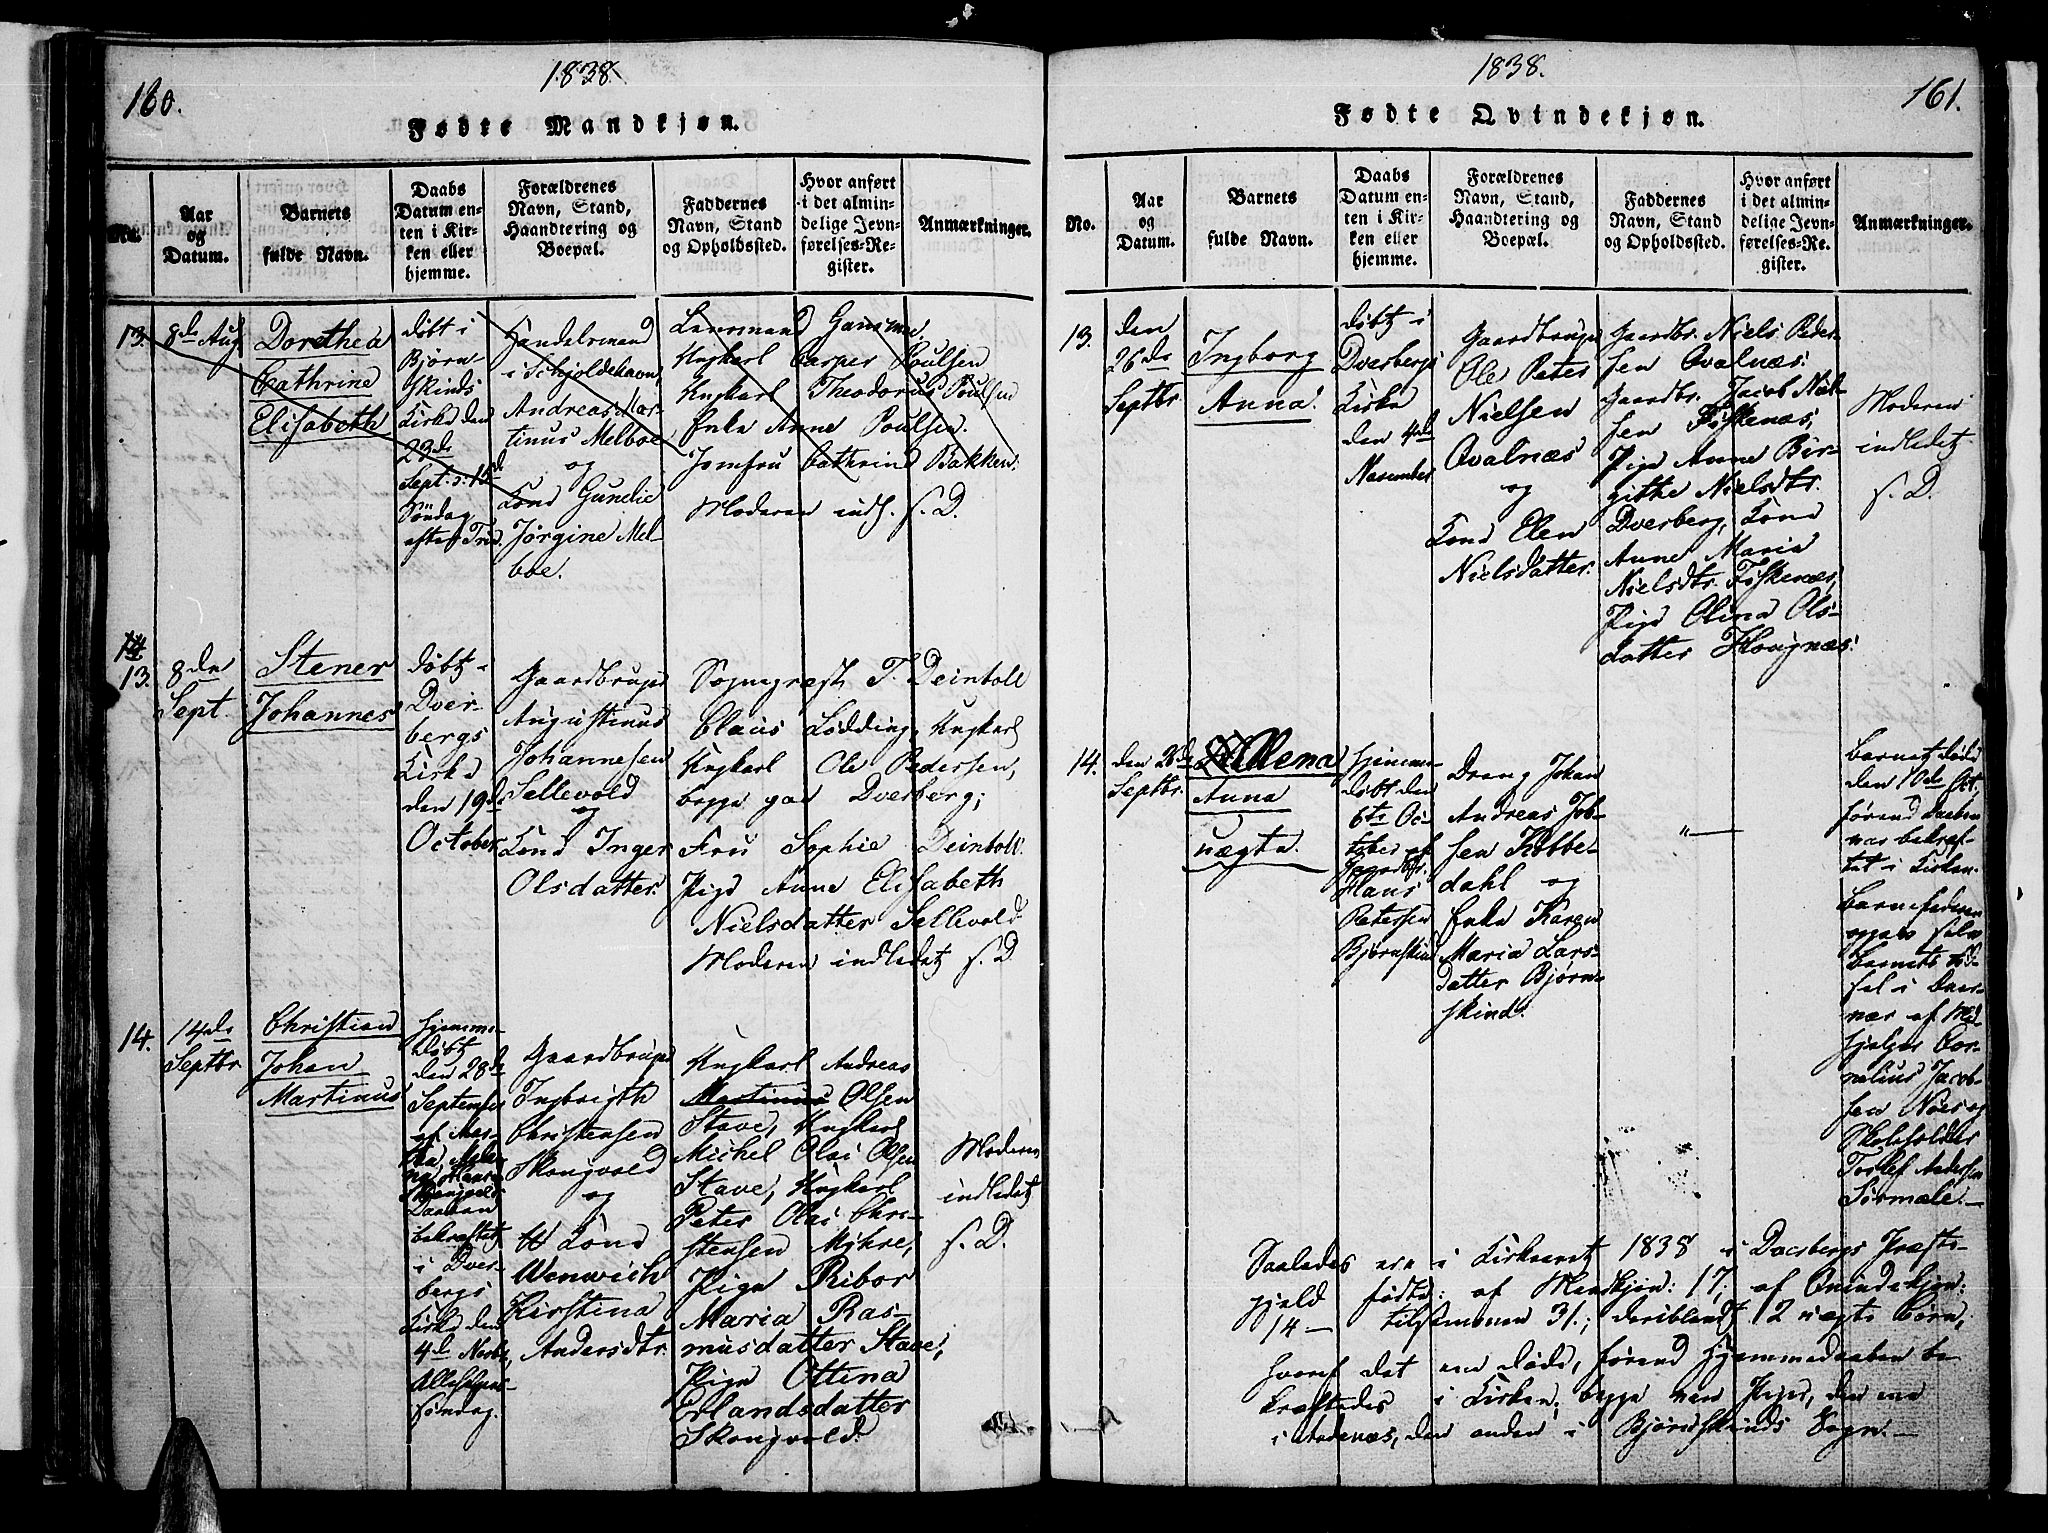 160.
1838.
Fødte Mandkjøn.
No.
Aar
og
Datum.
Barnets
fulde Navn.
Daabs
Datum en-
ten i Kir-
ken eller
hjemme.
Forældrenes
Navn, Stand,
Haandtering og
Boepæl.
Faddernes
Navn, Stand
og Opholdssted.
Hvor anført
i det almin-
delige Jevn-
førelses-Re-
gister.
Anmærkninger.
13.
8de Aug
Dorethea
Cathrine
Elisabeth
døbt i
Bjørn-
skinds
Kirke den
23de
Sept. s: 15de
Søndag
efter Trid.
Handelsmand
i Skjoldehavn,
Andreas Mar-
tinus Melboe
og
Kone Gunelie
Jørgine Mel-
boe.
Lensmand
Ungkarl Casper Poulsen
Ungkarl Theodorus Poulsen
Enke Anne Poulsen.
Jomfru Cathrine Bakken.
Moderen indl. s. D.
14
13.
8de
Sept.
Stener
Johannes
døbt i
Dver-
bergs
Kirke
den 19de
October
Gaardbruger
Augustinus
Johannesen
Sellevold
og
Kone Inger
Olsdatter.
Sognepræst T. Deinboll
Claus Lødding, Ungkarl
Ungkarl Ole Pedersen,
begge paa Dverberg;
Fru Sophie Deinboll.
Pige Anne Elisabeth
Nielsdatter Sellevold
Moderen indledet s. D
14.
14de
Septbr
Christian
Johan
Martinus
hjemme-
døbt
den 28de
September
af
Daaben
bekræftet
i Dver-
bergs
Kirke den
4de Novbr,
Allehelgens-
søndag.
Gaardbruger
Ingbrigth
Christensen
Skongvold
og
Kone
Wenwich
Kirstina
Andersdtr.
Ungkarl Andreas
Martinus Olsen
Stave, Ungkarl
Michel Olai Olsen
Stave, Ungkarl
Peter Olai Chri-
stensen Myhre,
Pige Ribor
Maria Ras-
musdatter Stave,
Pige Ottina
Erlandsdatter
Skongvold.
Moderen
indledet
s. D.
1838.
161.
Fødte Qvindekjøn.
No.
Aar
og
Datum.
Barnets
fulde Navn.
Daabs
Datum en-
ten i Kir-
ken eller
hjemme.
Forældrenes
Navn, Stand,
Haandtering og
Boepæl.
Faddernes
Navn, Stand
og Opholdssted.
Hvor anført
i det almin-
delige Jevn-
førelses-Re-
gister.
Anmærkninger.
13.
den
26de
Septbr
Ingborg
Anna.
døbt i
Dverbergs
Kirke
den 4de
November
Gaardbruger
Ole Peter
Nielsen
Qvalnæs
og
Kone Elen
Nielsdatter.
Gaardbr. Niels Peder-
sen Qvalnæs.
Gaardbr. Jacob Niel-
sen Fiskenæs,
Pige Anne Bir-
githe Nielsdtr.
Dverberg, Kone
Anne Maria
Nielsdtr. Fiskenæs,
Pige Olina Ols-
datter Hougnæs.
Moderen
indledet
s. D.
14.
den 28de
Septbr.
Olena
Anna
uægte.
hjemme-
døbt den
6te Oc-
tober af
Gaardbr.
Hans
Petersen
Bjørnskin
Dreng Johan
Andreas Job-
sen Kobbe-
dahl og
Enke Karen
Maria Lars-
datter Bjørn-
skind.
"—
Barnet døde
den 10de Oct.
førend Daaben
var bekræf-
tet i Kirken.
Barnefaderen
opgav selv
Barnets Fød-
sel i Over-
vær af Med-
hjelper Cor-
nelius Jacob-
sen Noes og
Skoleholder
Torlef Andersen
Sørmæle.—
Saaledes ere i Kirkeaaret 1838 i Dverbergs Præste-
gjeld fødte: af Mandkjøn: 17, af Qvindekjøn:
14— tilsammen 31.; deriblandt 2 uægte Børn,
hvoraf det ene døde, førend Hjemmedaaben be-
kræftedes i Kirken; begge ved Piger, den ene
i Andenæs, den anden i Bjørnskinds Sogn.—